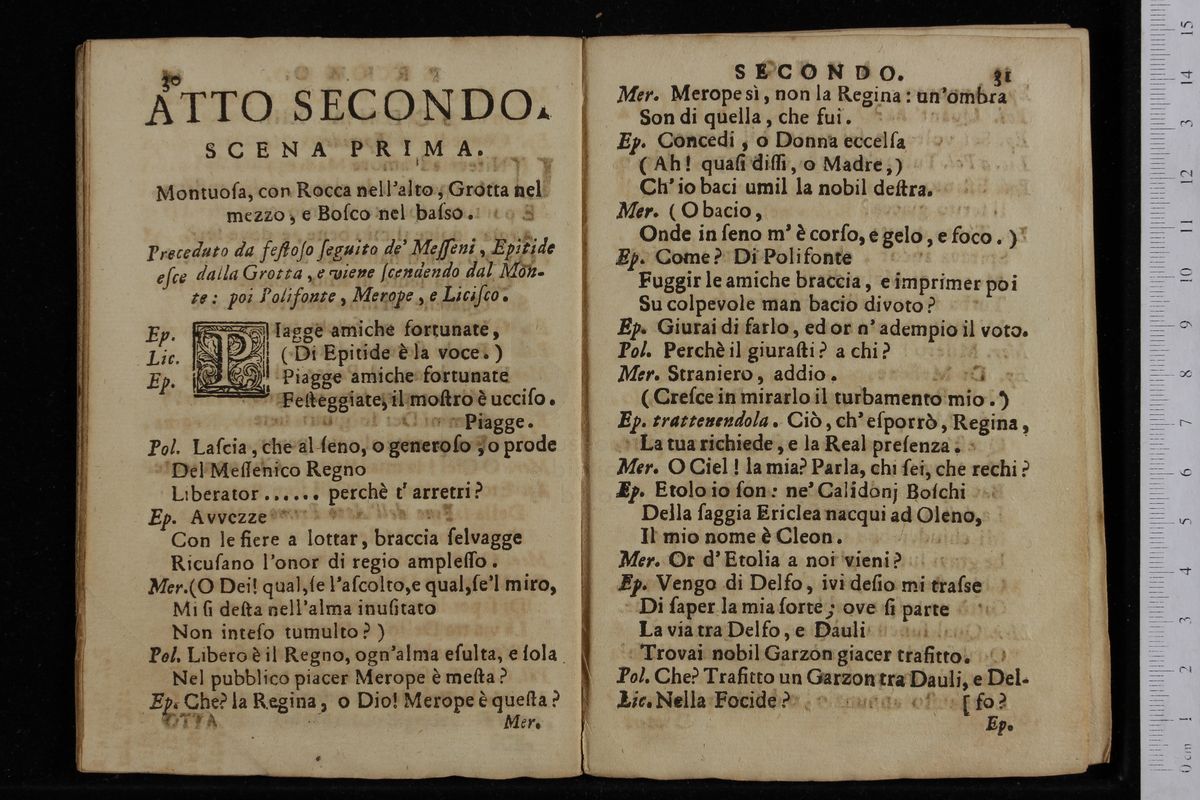 30
ATTO SECONDO.
SCENA PRIMA.
Montuoſa, con Rocca nell'alto, Grotta nel
mezzo, e Boſco nel baſso.
Preceduto da feſtoſo ſeguito de' Meſſeni, Epitide
eſce dalla Grotta, e viene ſcendendo dal Mon-
te: poi Polifonte, Merope, e Liciſco.
Ep. PIagge amiche fortunate,
Lic. (Di Epitide è la voce.)
Ep. Piagge amiche fortunate
Feſteggiate, il moſtro è ucciſo.
Piagge.
Pol. Laſcia, che al ſeno, o generoſo, o prode
Del Meſſenico Regno
Liberator ...... perchè t' arretri?
Ep. Avvezze
Con le fiere a lottar, braccia ſelvagge
Ricuſano l'onor di regio ampleſſo.
Mer.(O Dei! qual,ſe l'aſcolto,e qual,ſe'l miro,
Mi ſi deſta nell'alma inuſitato
Non inteſo tumulto?)
Pol. Libero è il Regno, ogn'alma eſulta, e ſola
Nel pubblico piacer Merope è meſta?
Ep. Che? la Regina, o Dio! Merope è queſta?
Mer.
SECONDO. 31
Mer. Merope sì, non la Regina: un'ombra
Son di quella, che fui.
Ep. Concedi, o Donna eccelſa
(Ah! quaſi diſſi, o Madre,)
Ch' io baci umil la nobil deſtra.
Mer. (O bacio,
Onde in ſeno m' è corſo, e gelo, e foco.)
Ep. Come? Di Polifonte
Fuggir le amiche braccia, e imprimer poi
Su colpevole man bacio divoto?
Ep. Giurai di farlo, ed or n' adempio il voto.
Pol. Perchè il giuraſti? a chi?
Mer. Straniero, addio.
(Creſce in mirarlo il turbamento mio.)
Ep. trattenendola. Ciò, ch' eſporrò, Regina,
La tua richiede, e la Real preſenza.
Mer. O Ciel! la mia? Parla, chi ſei, che rechi?
Ep. Etolo io ſon: ne' Calidonj Boſchi
Della ſaggia Ericlea nacqui ad Oleno,
Il mio nome è Cleon.
Mer. Or d' Etolia a noi vieni?
Ep. Vengo di Delfo, ivi deſio mi traſse
Di ſaper la mia ſorte; ove ſi parte
La via tra Delfo, e Dauli
Trovai nobil Garzon giacer trafitto.
Pol. Che? Trafitto un Garzon tra Dauli, e Del-
Lic. Nella Focide? [fo?
Ep.
0 cm 1 2 3 4 5 6 7 8 9 10 11 12 13 14 15